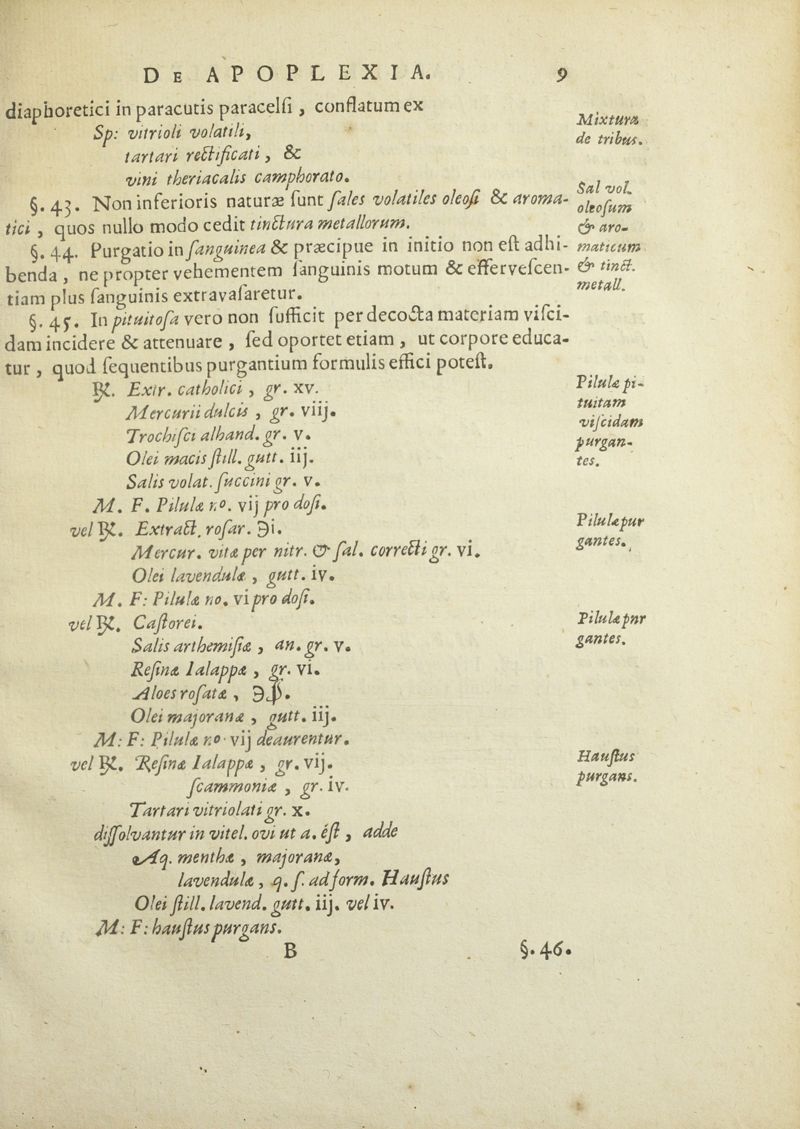 De APOPLEXIA. 9
diaphoretici in paracutis paracelſi , conflatum ex
Mixtura
de tribus.
Sp: vitrioli volatili,
tartari rectificati , &
vini theriacalis camphorato.
§. 43. Non inferioris naturæ ſunt ſales volatiles oleoſi & aroma-
tici , quos nullo modo cedit tinctura metallorum.
Sal vol.
oleoſum
& aro-
maticum
& tinct.
metall.
§. 44. Purgatio in ſanguinea & præcipue in initio non eſt adhi-
benda , ne propter vehementem ſanguinis motum & efferveſcen-
tiam plus ſanguinis extravaſaretur.
§. 45. In pituitoſa vero non ſufficit per decocta materiam viſci-
dam incidere & attenuare , ſed oportet etiam , ut corpore educa-
tur , quod ſequentibus purgantium formulis effici poteſt.
℞. Extr. catholici , gr. xv.
Pilulæ pi-
tuitam
viſcidam
purgan-
tes.
Mercurii dulcis , gr. viij.
Trochiſci alhand. gr. v.
Olei macis ſtill. gutt. iij.
Salis volat. ſuccini gr. v.
M. F. Pilulæ no. vij pro doſi.
vel ℞. Extract. roſar. ℈i.
Pilulæ pur
gantes.
Mercur. vitæ per nitr. & ſal. correcti gr. vi.
Olei lavendulæ , gutt. iv.
M. F: Pilulæ no. vi pro doſi.
vel ℞. Caſtorei.
Pilulæ pnr
gantes.
Salis arthemiſiæ , an. gr. v.
Reſinæ Ialappæ , gr. vi.
Aloes roſatæ , ℈β.
Olei majoranæ , gutt. iij.
M: F: Pilulæ no. vij deaurentur.
vel ℞. Reſinæ Ialappæ , gr. vij.
Hauſtus
purgans.
ſcammoniæ , gr. iv.
Tartari vitriolati gr. x.
diſſolvantur in vitel. ovi ut a. eſt , adde
Aq. menthæ , majoranæ,
lavendulæ , q. ſ. ad form. Hauſtus
Olei ſtill. lavend. gutt. iij. vel iv.
M: F: hauſtus purgans.
B §. 46.